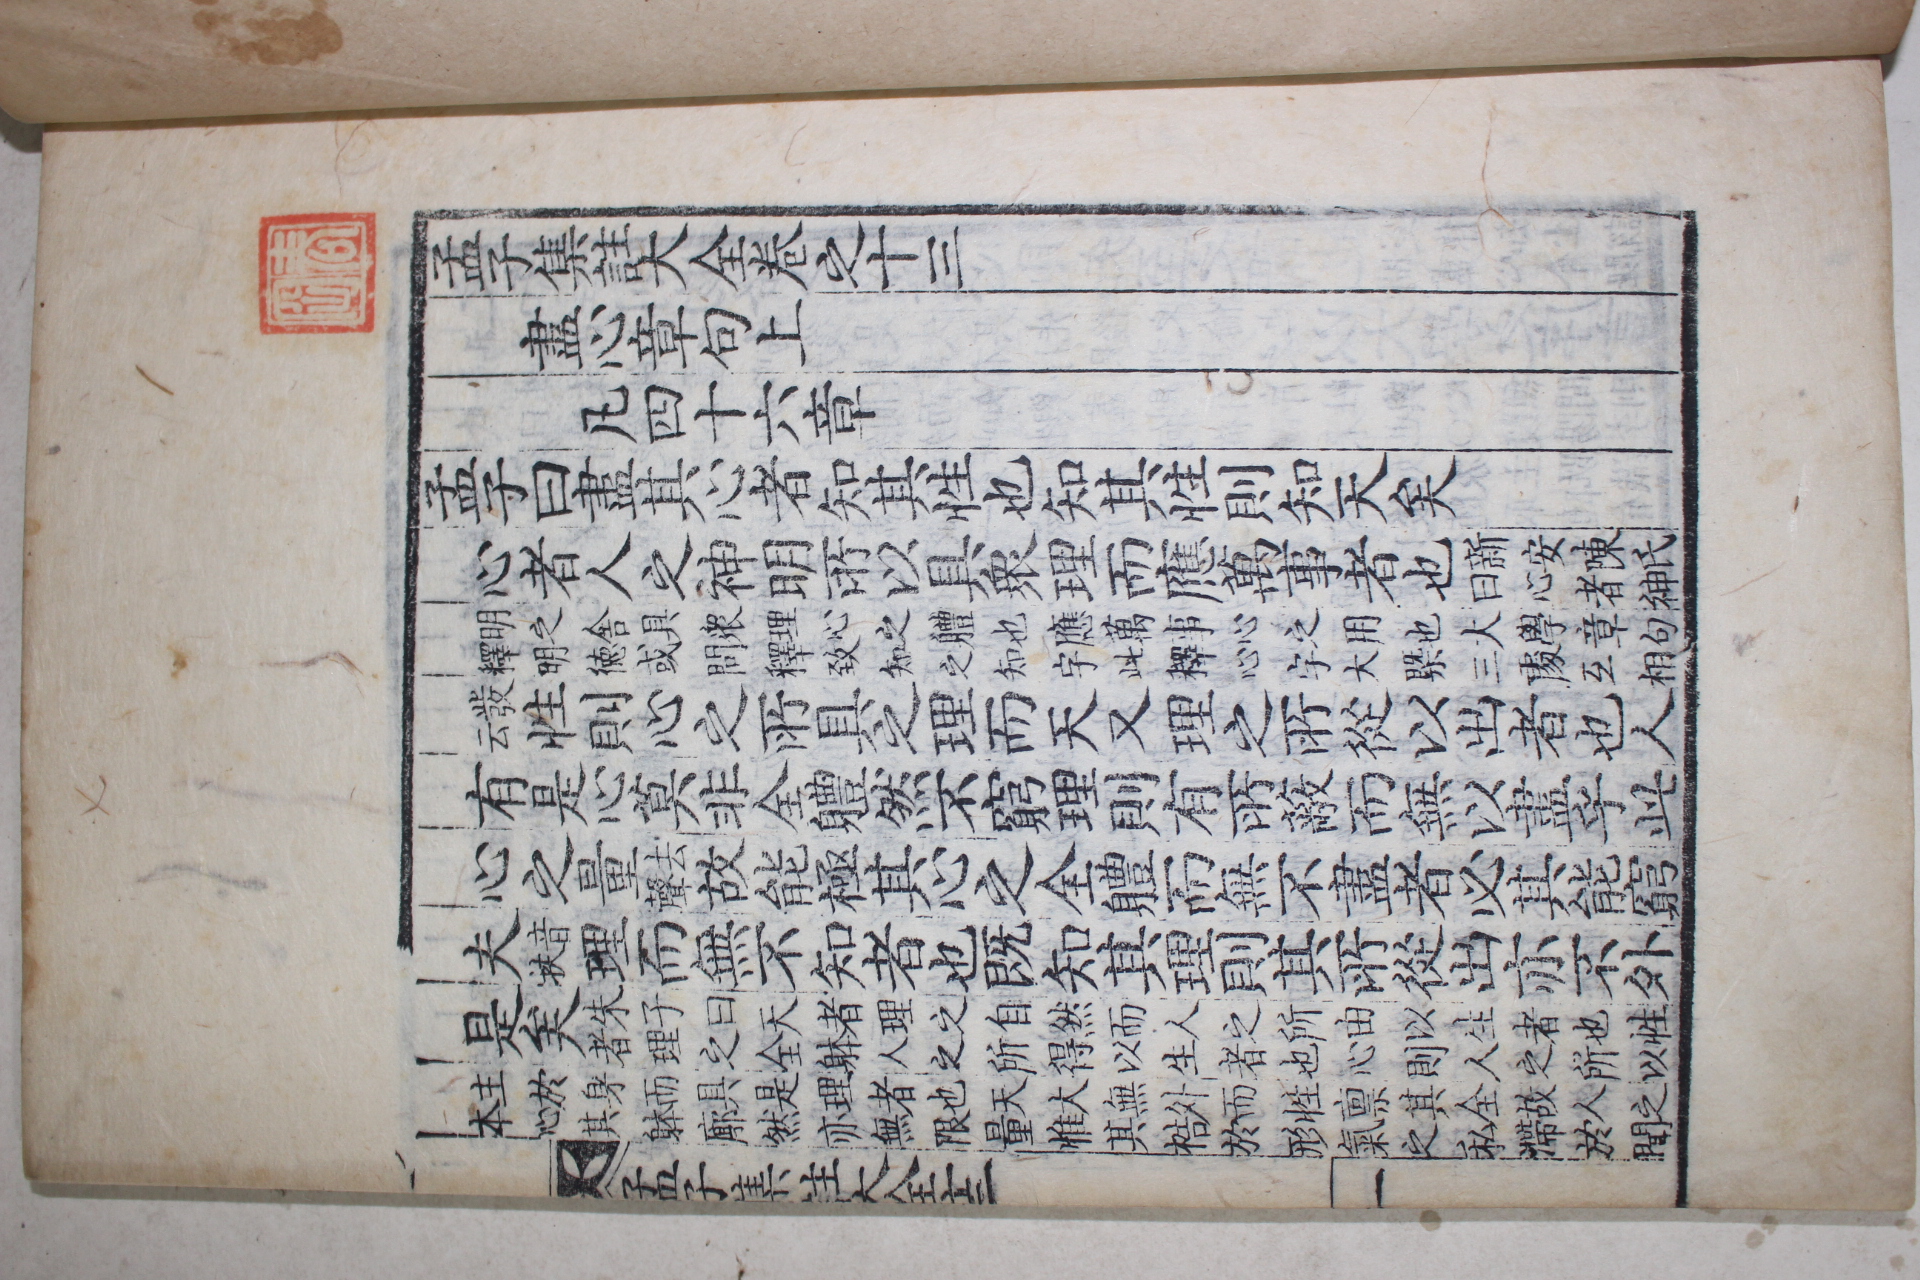 孟子集註大全卷之十三
盡心章句上
凡四十六章
孟子曰盡其心者知其性也知其性則知天矣
心者人之神明所以具衆理而應萬事者也新安陳氏曰心者神
明之舍具衆理心之軆也應萬事心之用也大學章句
釋明德或問釋致知之知字此釋心字大槩三處互相
發云性則心之所具之理而天又理之所從以出者也人
有是心莫非全軆然不窮理則有所蔽而無以盡乎此
心之量去聲故能極其心之全軆而無不盡者必其能窮
夫音扶理而無不知者也既知其理則其所從出亦不外
是矣朱子曰天者理之自然而人之所由以生者也性
者理之全躰人之所得以生者也心則人之所以
主於身而具是理者也天大無外而性禀其全故人之
本心其躰廓然亦無限量惟其梏於形氣之私滯於聞
孟子集註大全十三
一